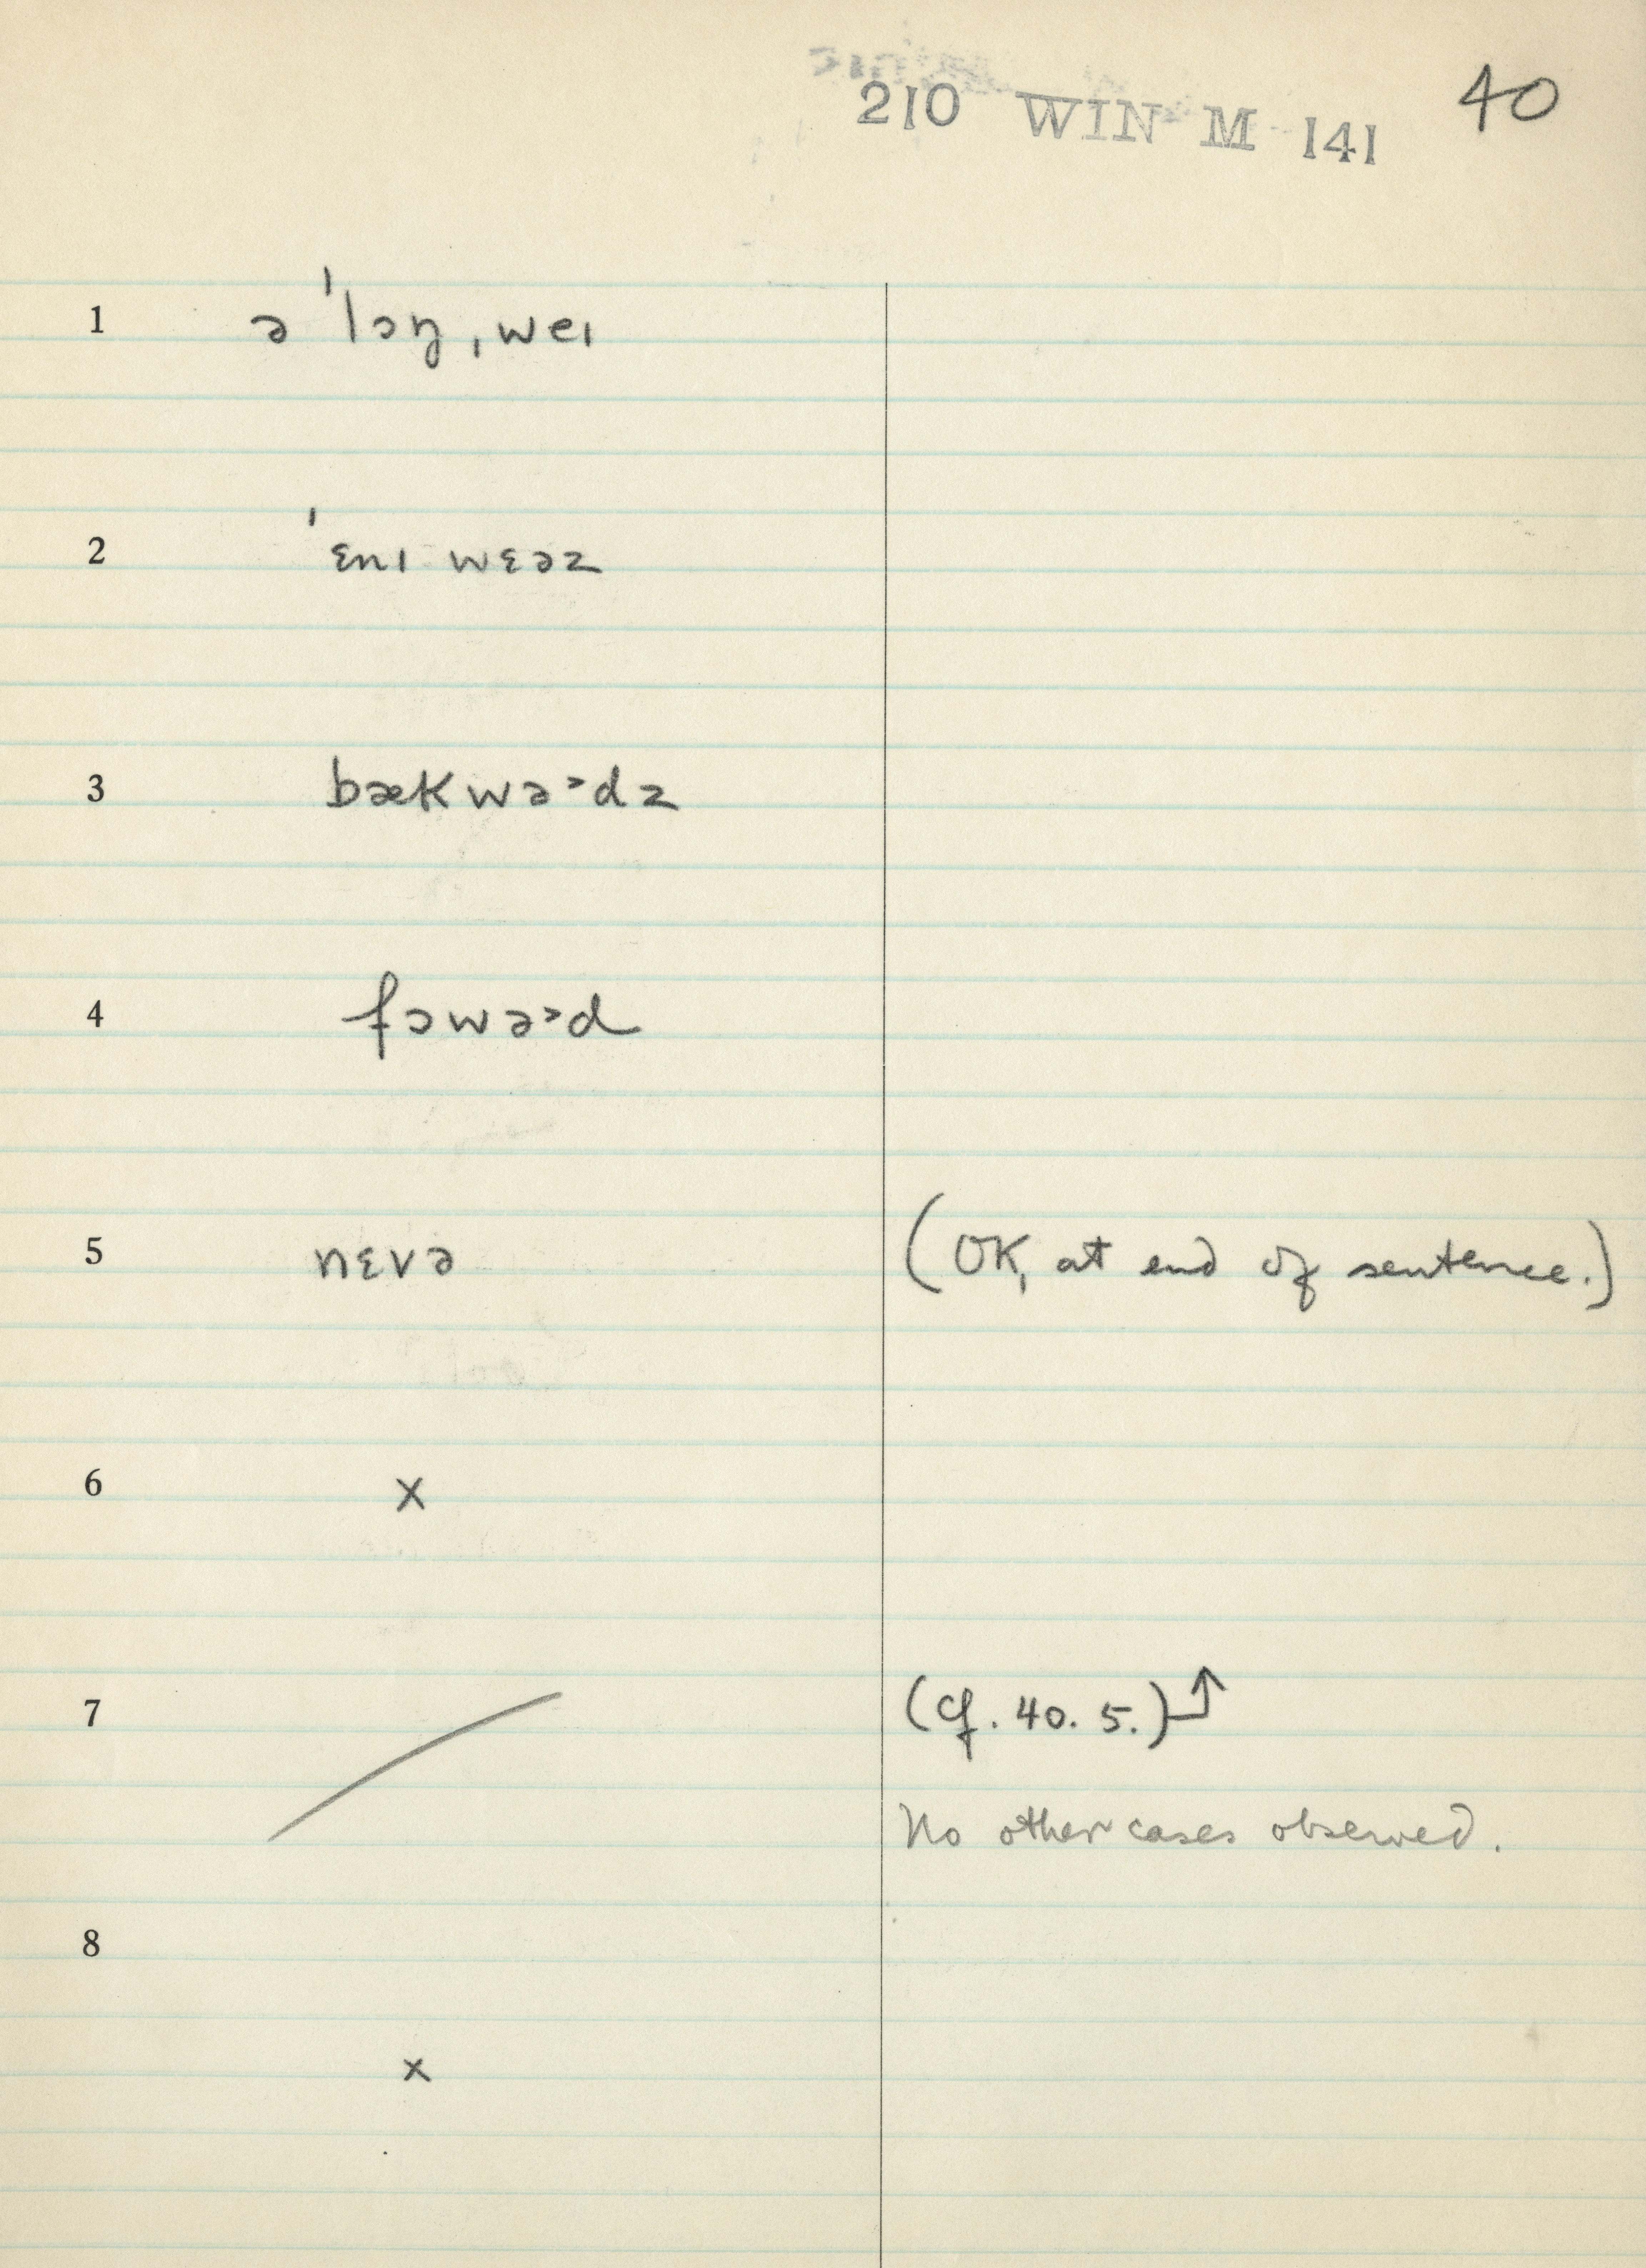 210 WIN M 141 40
1 ə ˈlɔŋ ˌweɪ
2 ˈɛnɪ wɛəz
3 bækwə˃dz
4 fɔwə˃d
5 nɛvə (OK, at end of sentence.)
6 x
7 (cf. 40. 5.)
No other cases observed.
8
x